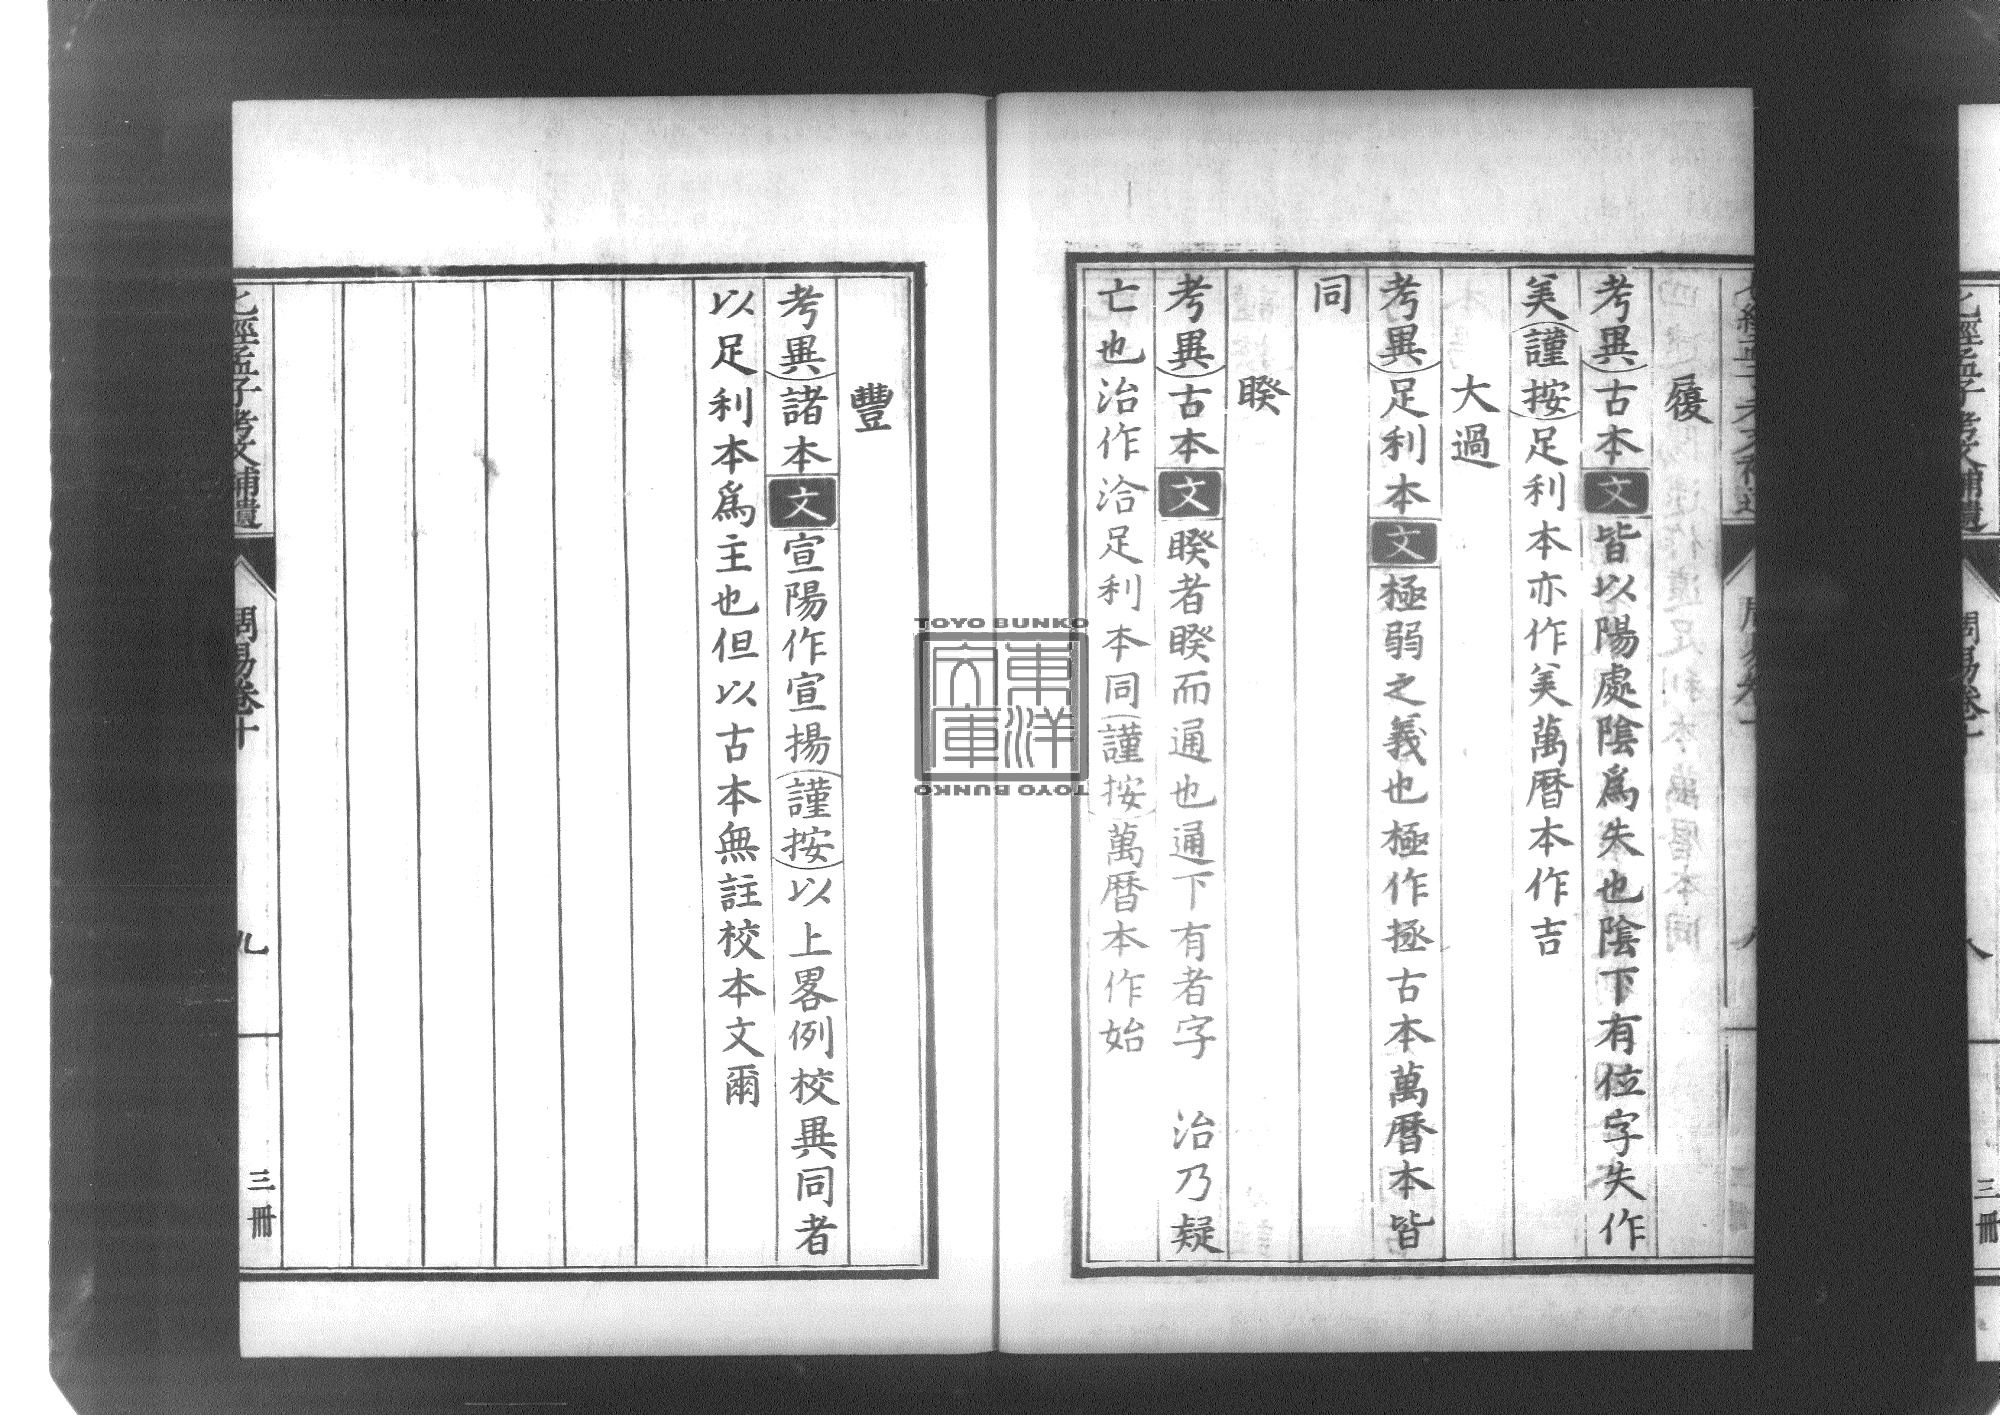 履
考異古本文皆以陽處陰爲失也陰下有位字失作
美謹按足利本亦作美萬曆本作吉
大過
考異足利本文極弱之義也極作拯古本萬曆本皆
同
睽
考異古本文睽者睽而通也通下有者字 治乃疑
亡也治作洽足利本同謹按萬曆本作始
豐
考異諸本文宣陽作宣揚謹按以上畧例校異同者
以足利本爲主也但以古本無註校本文爾
七經孟子考文補遺 周易卷十 九 三冊
TOYO BUNKO
東洋文庫
TOYO BUNKO
七經孟子考文補遺 周易卷十 八 三冊